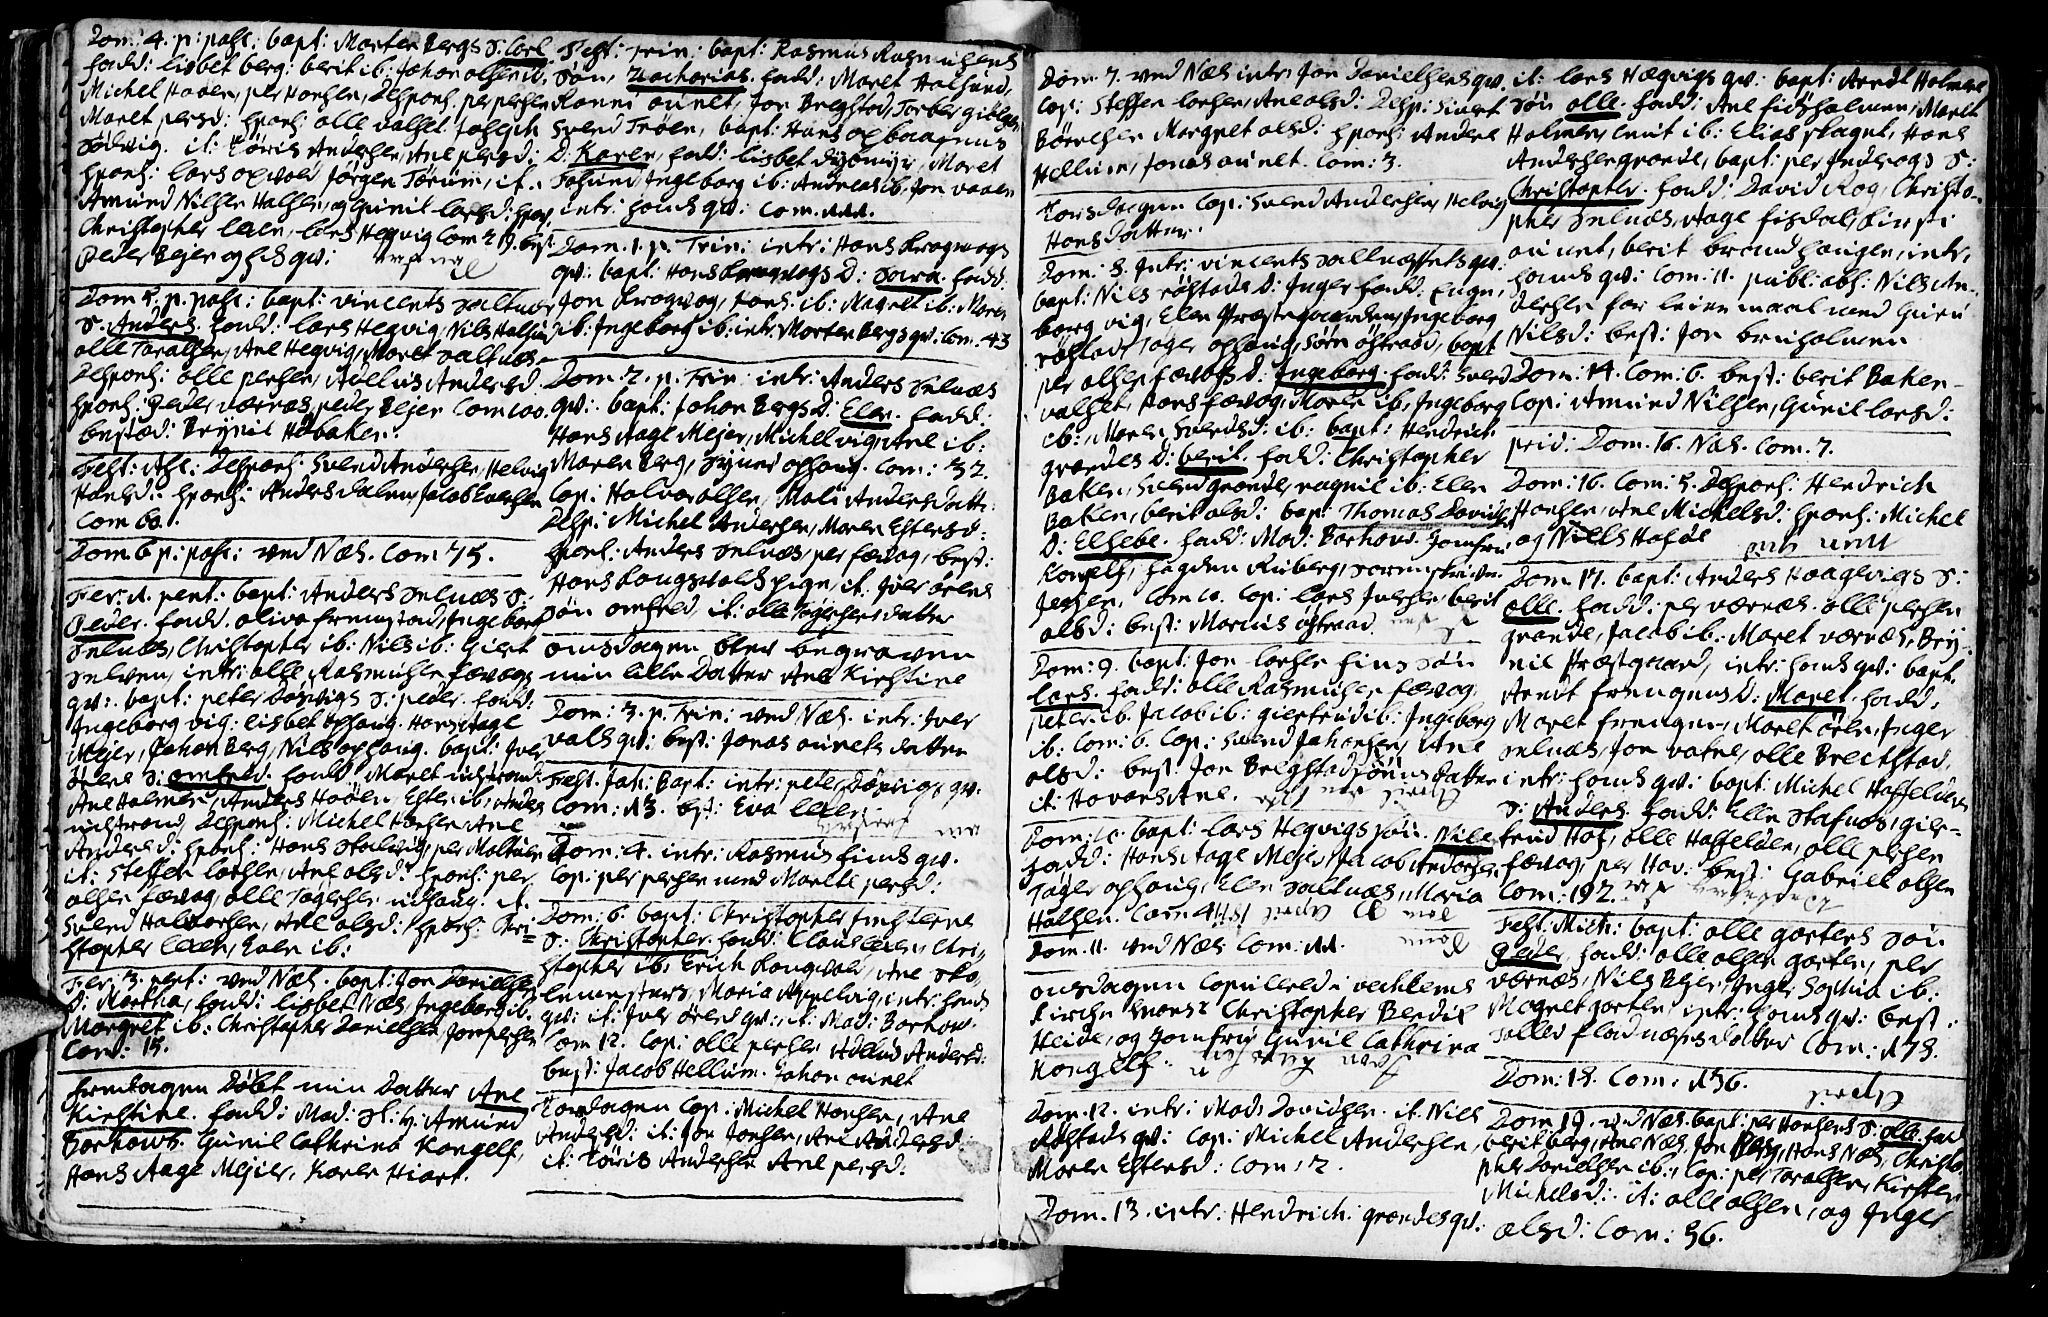 Dom: 4. p: pasc: bapt: Morten Bergs S: Carl
fadd: lisbet berg: berit ib: Johan olhsen ib.
Michel Haaen, per Hansen, Desponsh: per persen
Maret persd: sponsh: olle valset Joseph
Solvig. it: Tøris Andersen, Ane persd:
sponsh: lars opvold Jørgen Tørum, it.
Amund Nilsen Halsen, og Gunil larsd: spons
Christopher leen, lars Hegvig Com 219. best
Peder Bejer og hs qv:
Dom 5. p. pasc: bapt: vincents saltnæs
S: Anders. fadd: lars Hegvig, Nils Halsen
olle Taralsen, Ane Hegvig, Maret saltnæs.
Desponsh: olle persen, Adelus Andersd.
sponsh: Peder værnæs, peder Bejer Com 100.
begraed: Brynil Hobaken.
Fest: Asc: Desponsh: Svend Andersen, Helvig
Hansd: sponsh: Anders dalen, Jacob Evensen
Com 60.
Dom 6 p: pasc: ved Næs. Com 75.
Fer: 1. pent: bapt: Anders selnæs S:
Peder. fadd: oliva fremstad, Ingeborg
selnæs, Christopher ib: Nils ib: Giert
selven, intr: olle Rasmusen fævogs
qv: bapt: peter Døsvigs S: peder. fadd:
Ingeborg vig. lisbet ophaug. Hans Aage
Mejer, Johan Berg, Nils ophaug. bapt: Iver
ørens S: omfred. fadd: Maret
Ane Holmen, Anders Hoøen, Ester ib: Anders
Desponsh: Michel Hansen Ane
Andersd: sponsh: Hans Stalvig, per
it: Steffen larsen, Ane olsd: sponsh: per
olsen fævog, olle Tøgersen udhaug. it.
Svend Halvorsen, Ane olsd: sponsh: Chri-
stopher leen, ib:
Fer: 3. pent: ved Næs. bapt: Jon Danielsens
D: Martha, fadd: lisbet Næs, Ingeborg ib.
Margret ib: Christopher Danielsen, Jon persen
Com: 15.
fredagen Døbt min Datter Ane
Kirstine. fadd: Mad: Sl: Hr. Amund
Barhows. Gunil Cathrina Kongelf,
Hans Aage Mejer, Karen Hiort.
Fest: Trin: bapt: Rasmus Rasmusens
søn, Zacharias. fadd: Maret Halsund,
Ranni aunet, Jon Bregstad, Torber
Svend Trøen, bapt: Hans opbaagnus
D: Karen, fadd: lisbet Maret
Ingeborg ib: Andreas ib: Jon vaaen
intr: hands qv: Com. 111.
Dom. 1. p. Trin: intr: Hans Kragvogs
qv: bapt: Hans Kragvogs D: Sara. fadd:
Jon Kragvog, Hans ib: Magret ib: Maren
ib: Ingeborg ib: intr: Morten Bergs qv: Com: 43
Dom. 2. p. Trin: intr: Anders selnæs
qv: bapt: Johan Bergs D: Elen. fadd:
Hans Aage Mejer, Michel vig, Ane ib:
Maren Berg, ophaug. Com: 32.
Cop: Halvor olsen, Mali Andersdatt:
Desp: Michel Andersen, Maren Estersd:
sponsh: Anders selnæs, per fævog, best:
Hans Longsvolds pige, it. Iver ørens
søn omfred, it: olle Tøgersens datter
onsdagen blev begraven
min lille Datter Ane Kirstine
Dom: 3. p. Trin: ved Næs. intr: Iver
vals qv: best: Jonas aunets datter
Fest. Joh: Bapt: intr: peter Døsvigs qv:
Com: 13. best: Eva leen
Dom: 4. intr: Rasmus fins qv.
Cop: per persen med Marite persd:
Dom: 6. bapt: Christopher
S: Christopher. fadd: Claus leen, Chri-
stopher ib: Erich Longvold, Ane Sko-
lemesters, Maria Appelvig, intr: hands
qv: it: Iver ørens qv: it: Mad: Barhow.
Com 12. Cop: olle persen Adelus Andersd:
best: Jacob Hellum. Johan aunet
Torsdagen Cop: Michel Hansen, Ane
Andersd: it: Jon Jonsen, Ane Andersd.
it: Tøris Andersen Ane persd:
Dom. 7. ved Næs intr: Jon Danielsens qv.
Cop: Steffen larsen, Ane olsd: Desp: Sivert
Børresen Margret olsd: sponsh: Anders
Hellum, Jonas aunet. Com: 3.
Torsdagen Cop: Svend Andersen, Helvig
Hansdatter.
Dom: 8. Intr: vincents saltnæssets qv:
bapt: Nils røstads D: Inger fadd: Inge-
borg vig, Elen Præstegaarden, Ingeborg
røstad, Tøger ophaug, Sørn østraad, bapt
per olsen fævogs D: Ingeborg. fadd: Svend
valset, Hans fævog, Maren ib, Ingeborg
ib: Maren Svendsd: ib: bapt: Hendrich
grandes D: berit. fadd: Christopher
Baken, Svend grande, ragnil ib: Elen
Baken, berit olsd: bapt: Thomas Davidsens
D: Elsebe. fadd: Mad: Barhow. Jomfru
Kongelf, Hagden Ruberg,
Jessen. Com 10. Cop: lars Iversen, berit
olsd: best: Marcus østraad.
Dom: 9. bapt: Jon larsen fins søn
lars. fadd: olle Rasmusen fævog
peter ib. Jacob ib: giertrud ib: Ingeborg
ib: Com: 6. Cop: Svend Johansen, Ane
olsd: best: Jon Bregstads datter
it: Hovars Ane.
Dom: 10. bapt: lars Hegvigs søn. Nils
fadd: Hans Aage Mejer, Jacob Andersen,
Tøger ophaug, Elen saltnæs, Maria
Halsen. Com
Dom. 11. ved Næs Com: 11.
onsdagen Copulered i vecklems
Kirche Monsr Christopher Bendix
Heide, og Jomfru Gunil Cathrina
Kongelf.
Dom. 12. intr: Mads Davidsen. it. Nils
Røstads qv: Cop: Michel Andersen,
Maren Estersd: Com: 2.
Dom. 13. intr: Hendrich grandes qv:
it: lars Hægvigs qv: bapt: Arndt Holmens
søn olle. fadd: Ane fidsholmen, Maret
Holmen, Knut ib: Elias Staget, Hans
Andersen grande, bapt: per Inderogs S:
Christopher. fadd: David Rog, Christo-
pher selnæs, Aage fisdal, Kirsti
aunet, berit brandhaugen, intr,
hands qv: Com: 11. publ: abs: Nils An-
dersen for leiermaal med Guru
Nilsd: best: Jon breiholmen
Dom: 14. Com: 6. best: berit Baken
Cop: Amund Nilsen, Gunil larsd:
prid: Dom. 16. Næs. Com. 7.
Dom: 16. Com: 5. Desponsh: Hendrich
Hansen, Ane Michelsd: sponsh: Michel
og Niels Hasøe
Dom 17. bapt: Anders Haagevigs S:
olle. fadd: per værnæs. olle persen
grande, Jacob ib: Maret værnæs, Bry-
nil Præstgaard, intr: hands qv: bapt.
Arndt fremgens D: Maret. fadd,
Maret fremgen, Maret ørn, Inger
selnæs, Jon vatne, olle Breckstad,
intr: hands qv: bapt: Michel Hoffeldens
S: Anders. fadd: Elen Stafnæs, gier-
trud Hof, olle Hoffelden, olle persen
fævag, per Hov: best: Gabriel olsen
Com: 192.
Fest: Mich: bapt: olle gartens søn
Peder. fadd: olle olsen garten, per
værnæs, Nils Bejer, Inger Sophia ib:
Magret garten, intr: hands qv: best:
datter Com: 178.
Dom: 18. Com: 156.
Dom 19. ved Næs. bapt: per Hansens S: olle. fad
berit berg, Ane Næs, Jon Berg, Hans Næs, Christo-
pher Danielsen ib: Cop: per Taralsen, Kirsten
Michelsd: it: olle olsen, og Inger
olsd: Com: 56.